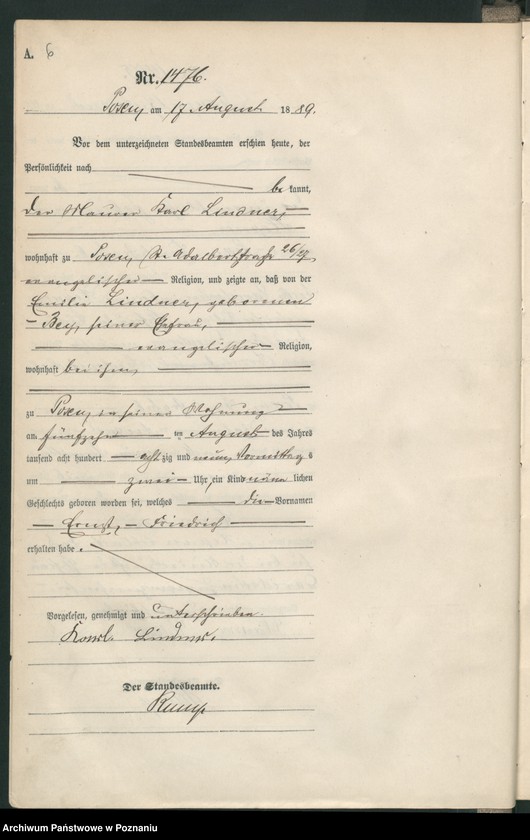 A. 6
Nr. 1476.
Posen, am 17 August 1889.
Vor dem unterzeichneten Standesbeamten erschien heute, der
Persönlichkeit nach
bekannt,
der Maurer Karl Lindner,
wohnhaft zu Posen, St. Adalbertstraße 26/27
evangelischer Religion, und zeigte an, daß von der
Emilie Lindner, geborenen
Bey, seiner Ehefrau,
evangelischer Religion,
wohnhaft bei ihm,
zu Posen, in seiner Wohnung
am fünfzehn ten August des Jahres
tausend acht hundert achtzig und neun, Vormittags
um zwei Uhr, ein Kind männlichen
Geschlechts geboren worden sei, welches die Vornamen
Ernst, Friedrich
erhalten habe.
Vorgelesen, genehmigt und unterschrieben.
Karl Lindner.
Der Standesbeamte.
Archiwum Państwowe w Poznaniu